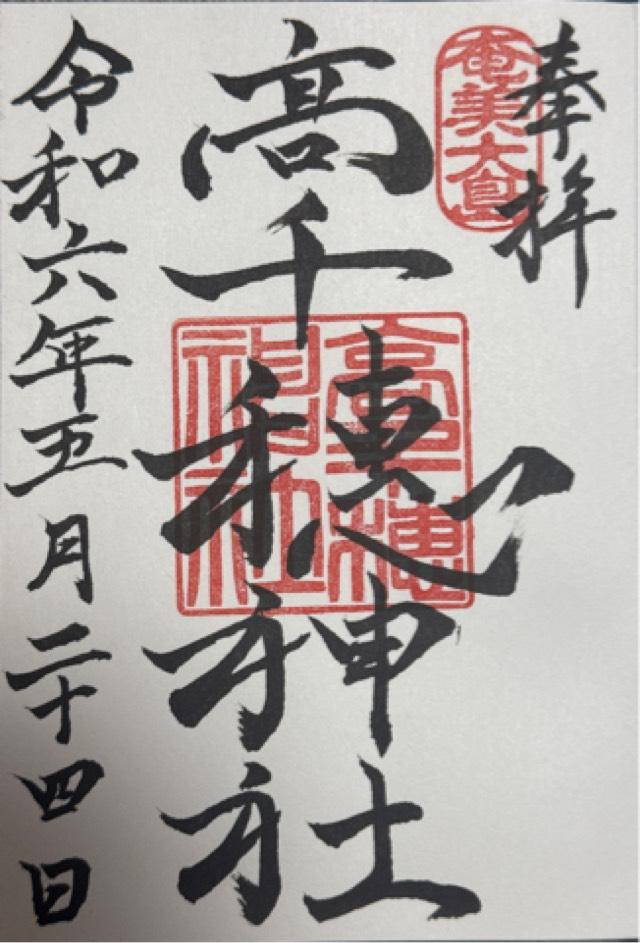 奉拝
奄美大島
高千穂神社
高千穂神社
令和六年五月二十四日